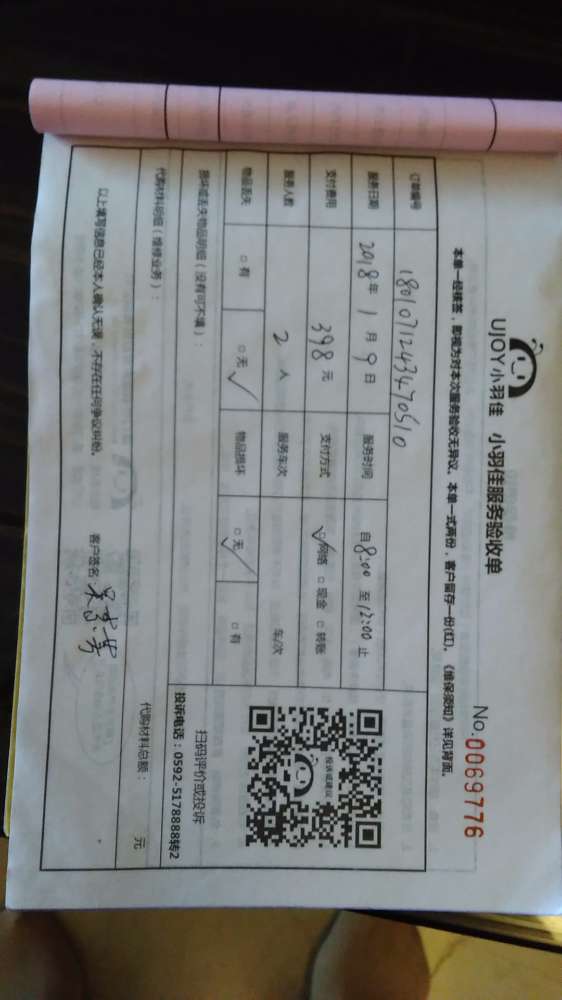 UJOY小羽佳 小羽佳服务验收单
No.0069776
本单一经核签，即视为对本次服务验收无异议。本单一式两份，客户留存一份(红)。《维保须知》详见背面。
订单编号 1801071243470510
服务日期 2018年1月9日 服务时间 自8:00至12:00止
支付费用 398元 支付方式 ☑网络 □现金 □转账
服务人数 2人 服务车次 车/次
物品丢失 □有 □无✓ 物品损坏 □无✓ □有
损坏或丢失物品明细（没有可不填）：
投诉或建议
扫码评价或投诉
投诉电话：0592-5178888转2
代购材料明细（维修业务）：
代购材料总额： 元
以上填写信息已经本人确认无误，不存在任何争议纠纷。 客户签名